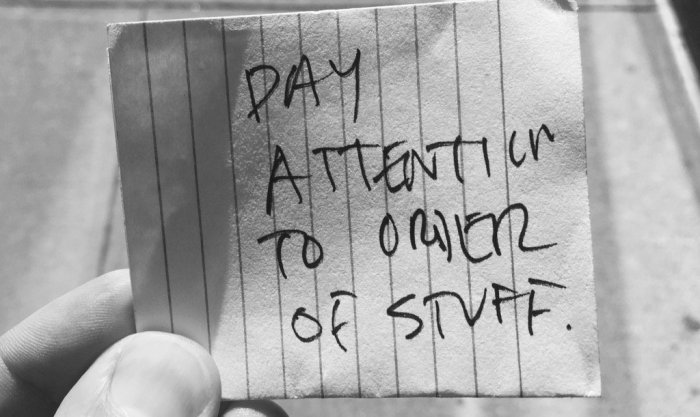 PAY
ATTENTION
TO ORDER
OF STUFF.